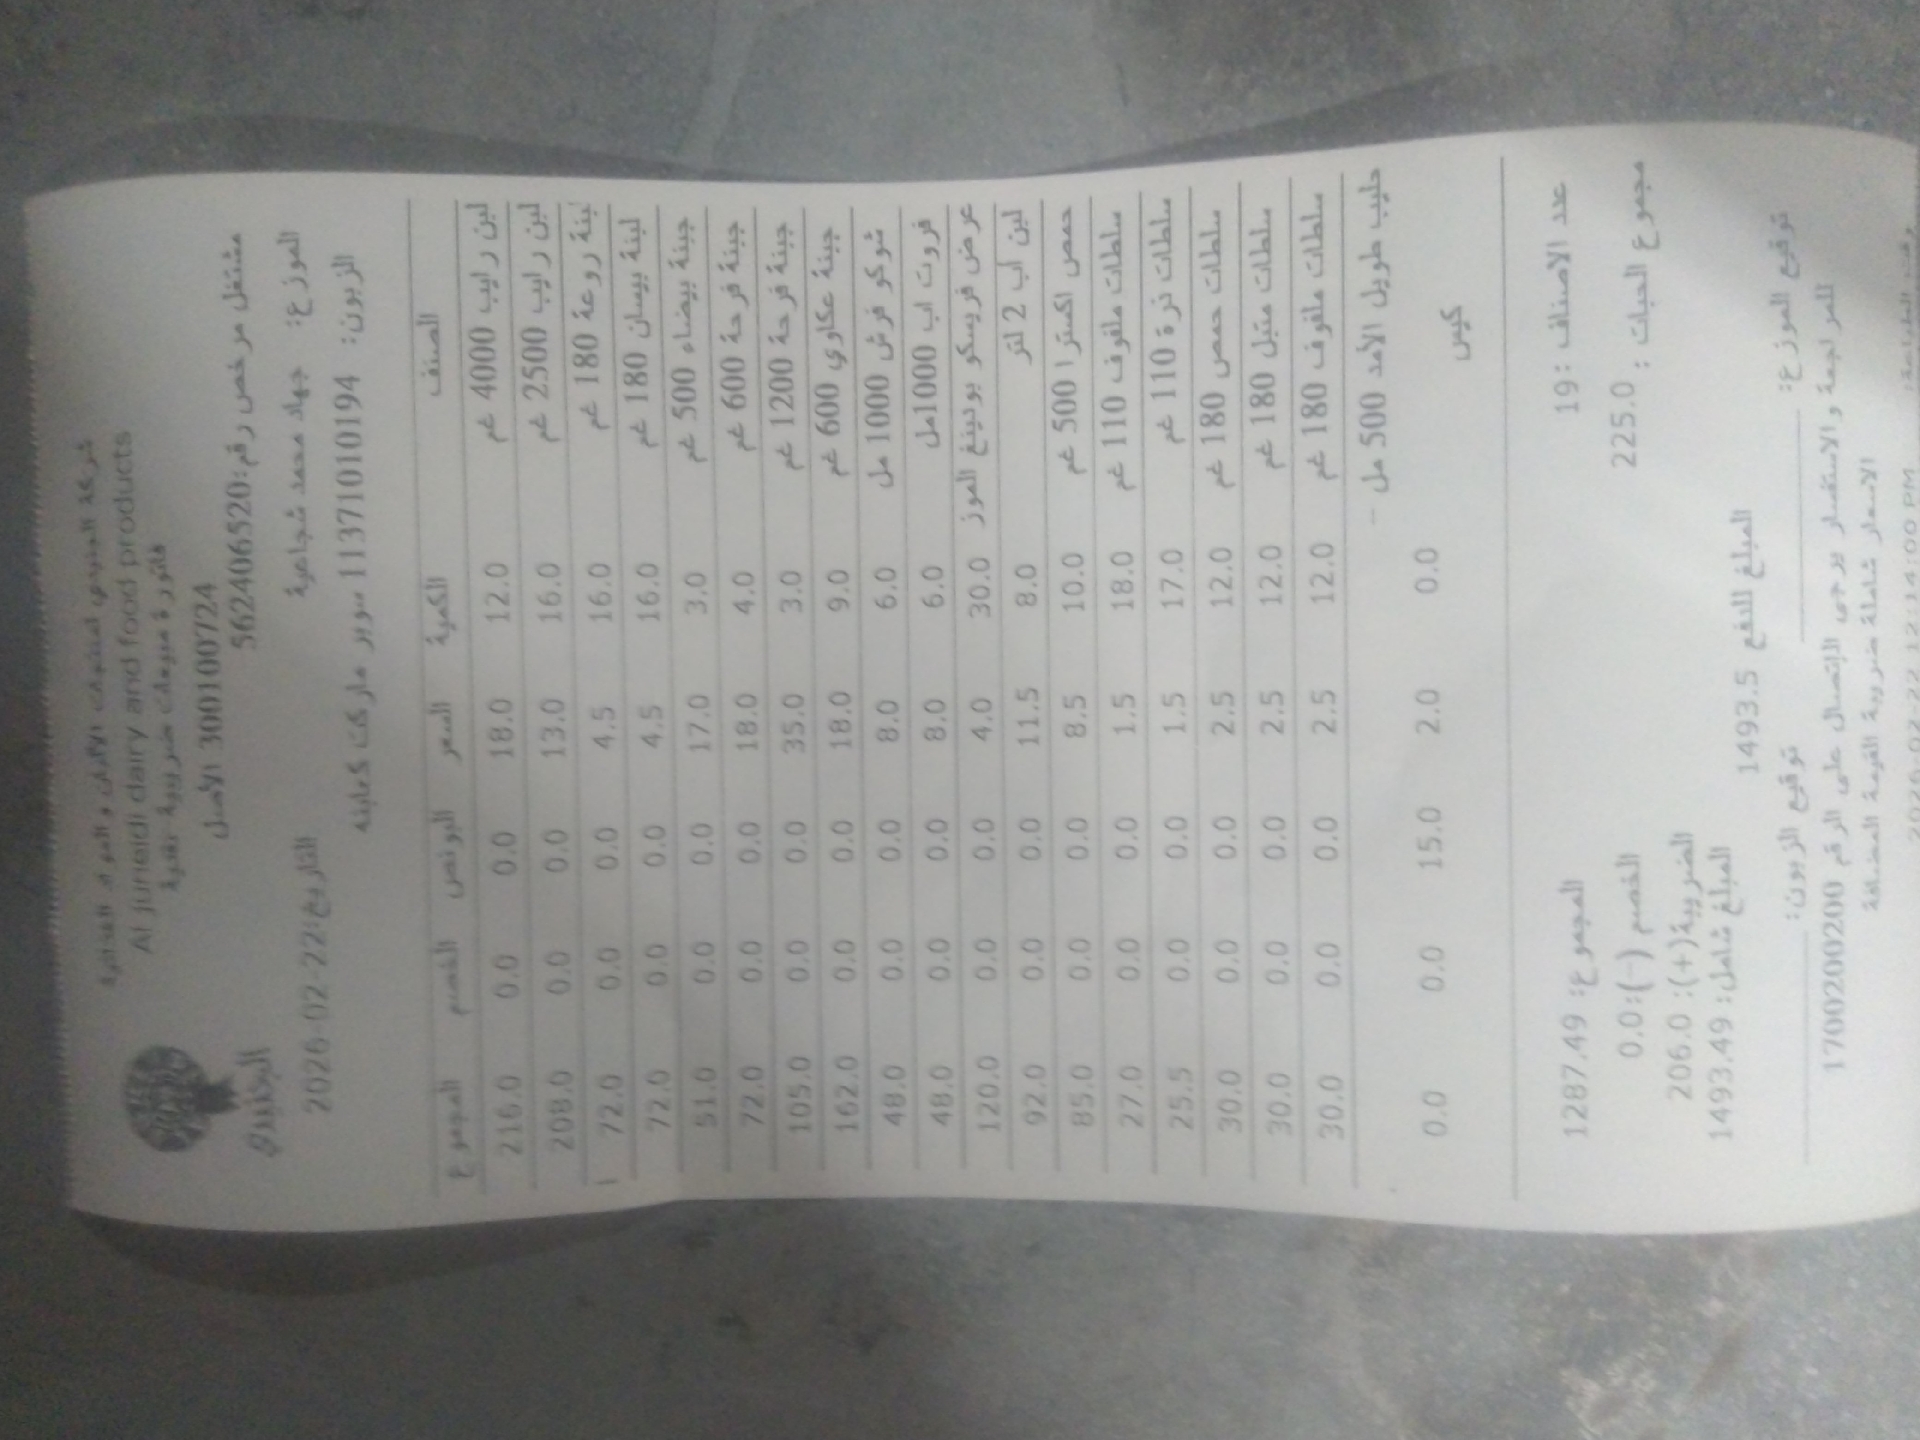 شركة الجنيدي لمنتجات الألبان و المواد الغذائية
Al juneidi dairy and food products
فاتورة مبيعات ضريبية نقدية
300100724 الأصل
مشتغل مرخص رقم:562406520
الجنيدي
الموزع: جهاد محمد شجاعية
التاريخ:2026-02-22
الزبون: 1137101010194 سوبر ماركت كعابنه
الصنف الكمية السعر البونص الخصم المجموع
لبن رايب 4000 غم 12.0 18.0 0.0 0.0 216.0
لبن رايب 2500 غم 16.0 13.0 0.0 0.0 208.0
لبنة روعة 180 غم 16.0 4.5 0.0 0.0 72.0
لبنة بيسان 180 غم 16.0 4.5 0.0 0.0 72.0
جبنة بيضاء 500 غم 3.0 17.0 0.0 0.0 51.0
جبنة فرحة 600 غم 4.0 18.0 0.0 0.0 72.0
جبنة فرحة 1200 غم 3.0 35.0 0.0 0.0 105.0
جبنة عكاوي 600 غم 9.0 18.0 0.0 0.0 162.0
شوكو فرش 1000 مل 6.0 8.0 0.0 0.0 48.0
فروت اب 1000مل 6.0 8.0 0.0 0.0 48.0
عرض فريسكو بودينغ الموز 30.0 4.0 0.0 0.0 120.0
لبن اب 2 لتر 8.0 11.5 0.0 0.0 92.0
حمص اكسترا 500 غم 10.0 8.5 0.0 0.0 85.0
سلطات ملفوف 110 غم 18.0 1.5 0.0 0.0 27.0
سلطات ذرة 110 غم 17.0 1.5 0.0 0.0 25.5
سلطات حمص 180 غم 12.0 2.5 0.0 0.0 30.0
سلطات متبل 180 غم 12.0 2.5 0.0 0.0 30.0
سلطات ملفوف 180 غم 12.0 2.5 0.0 0.0 30.0
حليب طويل الأمد 500 مل -
0.0 2.0 15.0 0.0 0.0
كيس
عدد الاصناف :19 المجموع: 1287.49
مجموع الحبات : 225.0 الخصم (-):0.0
الضريبة(+): 206.0
المبلغ شامل: 1493.49
المبلغ للدفع 1493.5
توقيع الموزع: توقيع الزبون:
للمراجعة والاستفسار يرجى الإتصال على الرقم 1700200200
الاسعار شاملة ضريبة القيمة المضافة
وقت الطباعة: 2026-02-22 12:14:00 PM